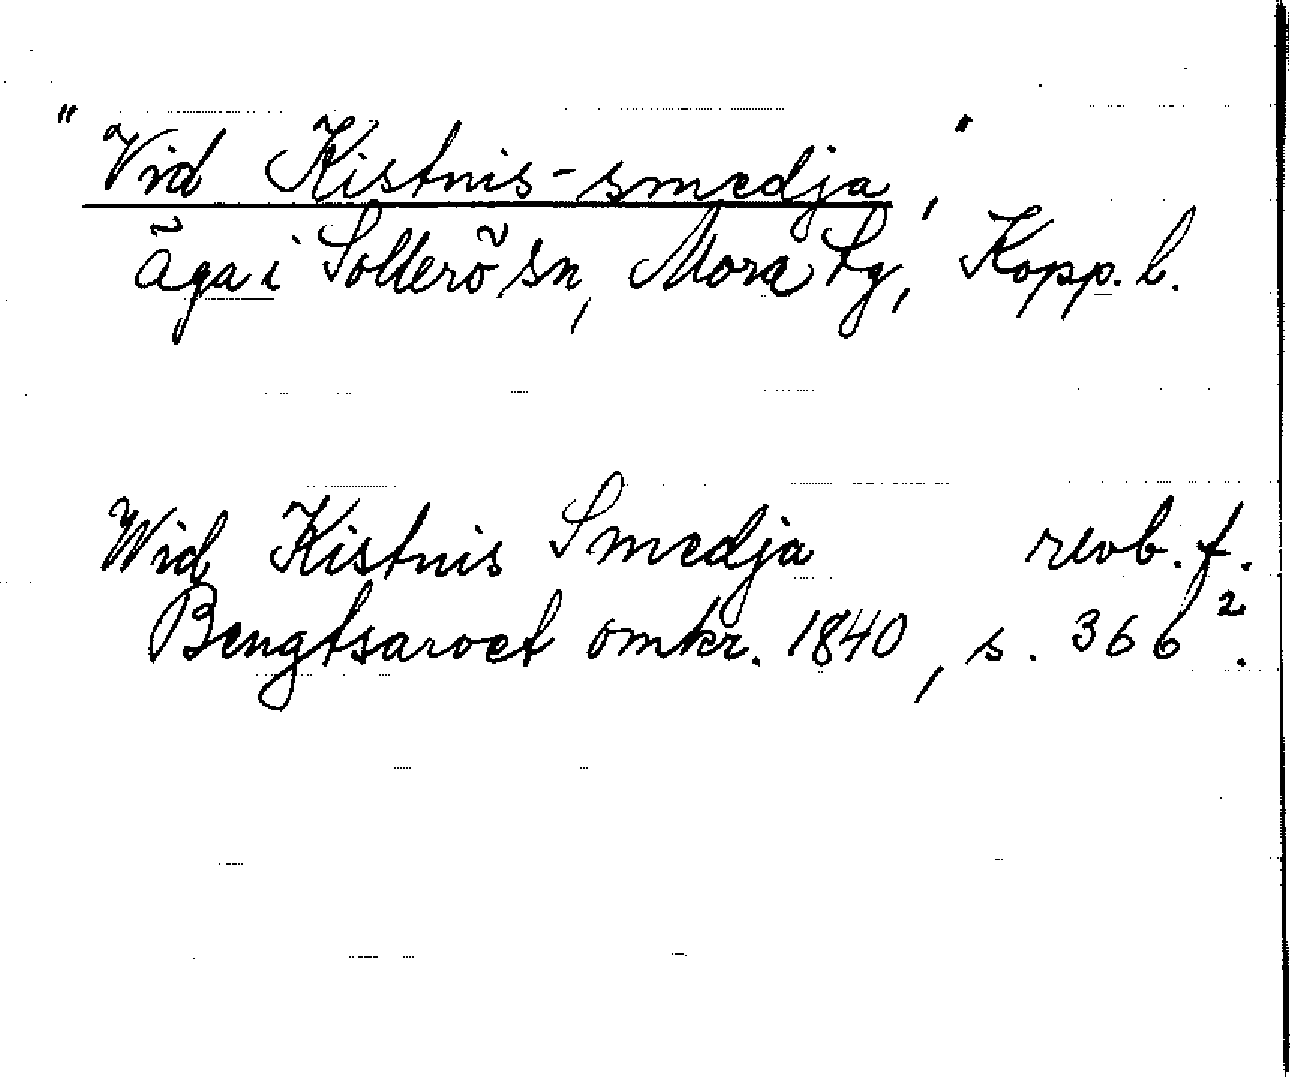 "Vid Kistnis-smedja,"
äga i Sollerö sn, Mora tg, Kopp. l.
Wid Kistnis Smedja revb. f.
Bengtsarvet omkr. 1840, s. 366².